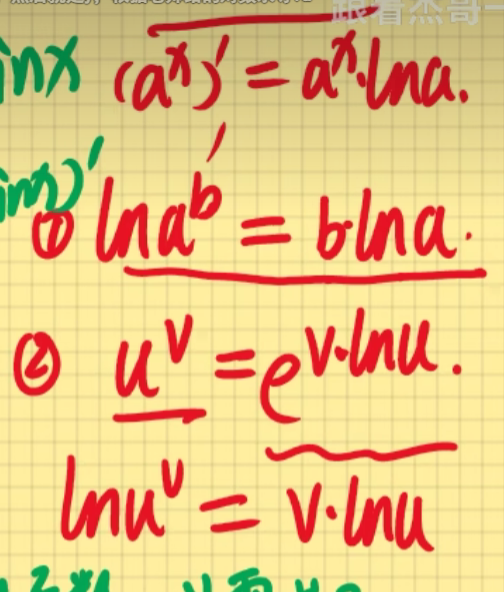 跟着杰哥一
inx (aˣ)′ = aˣ·lna.
inx)′
① lnaᵇ′ = b·lna.
② uᵛ = e^v·lnu.
lnuᵛ = v·lnu